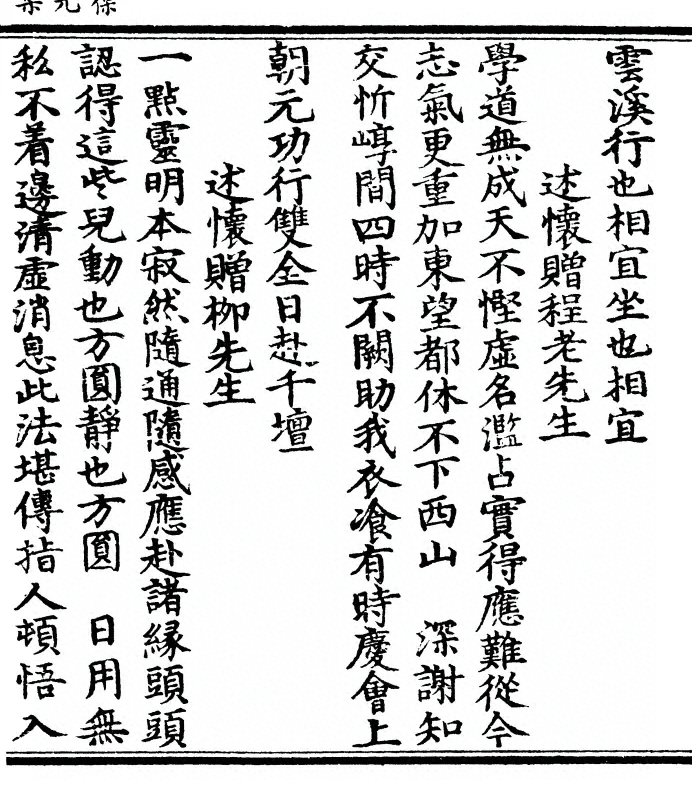 雲溪行也相宜坐也相宜
述懷贈程老先生
學道無成天不慳虛名濫占實得應難從今
志氣更重加東望都休不下西山　深謝知
交忻崞間四時不闕助我衣飡有時慶會上
朝元功行雙全日赴千壇
述懷贈柳先生
一點靈明本寂然隨通隨感應赴諸緣頭頭
認得這些兒動也方圓靜也方圓　日用無
私不着邊清虛消息此法堪傳指人頓悟入